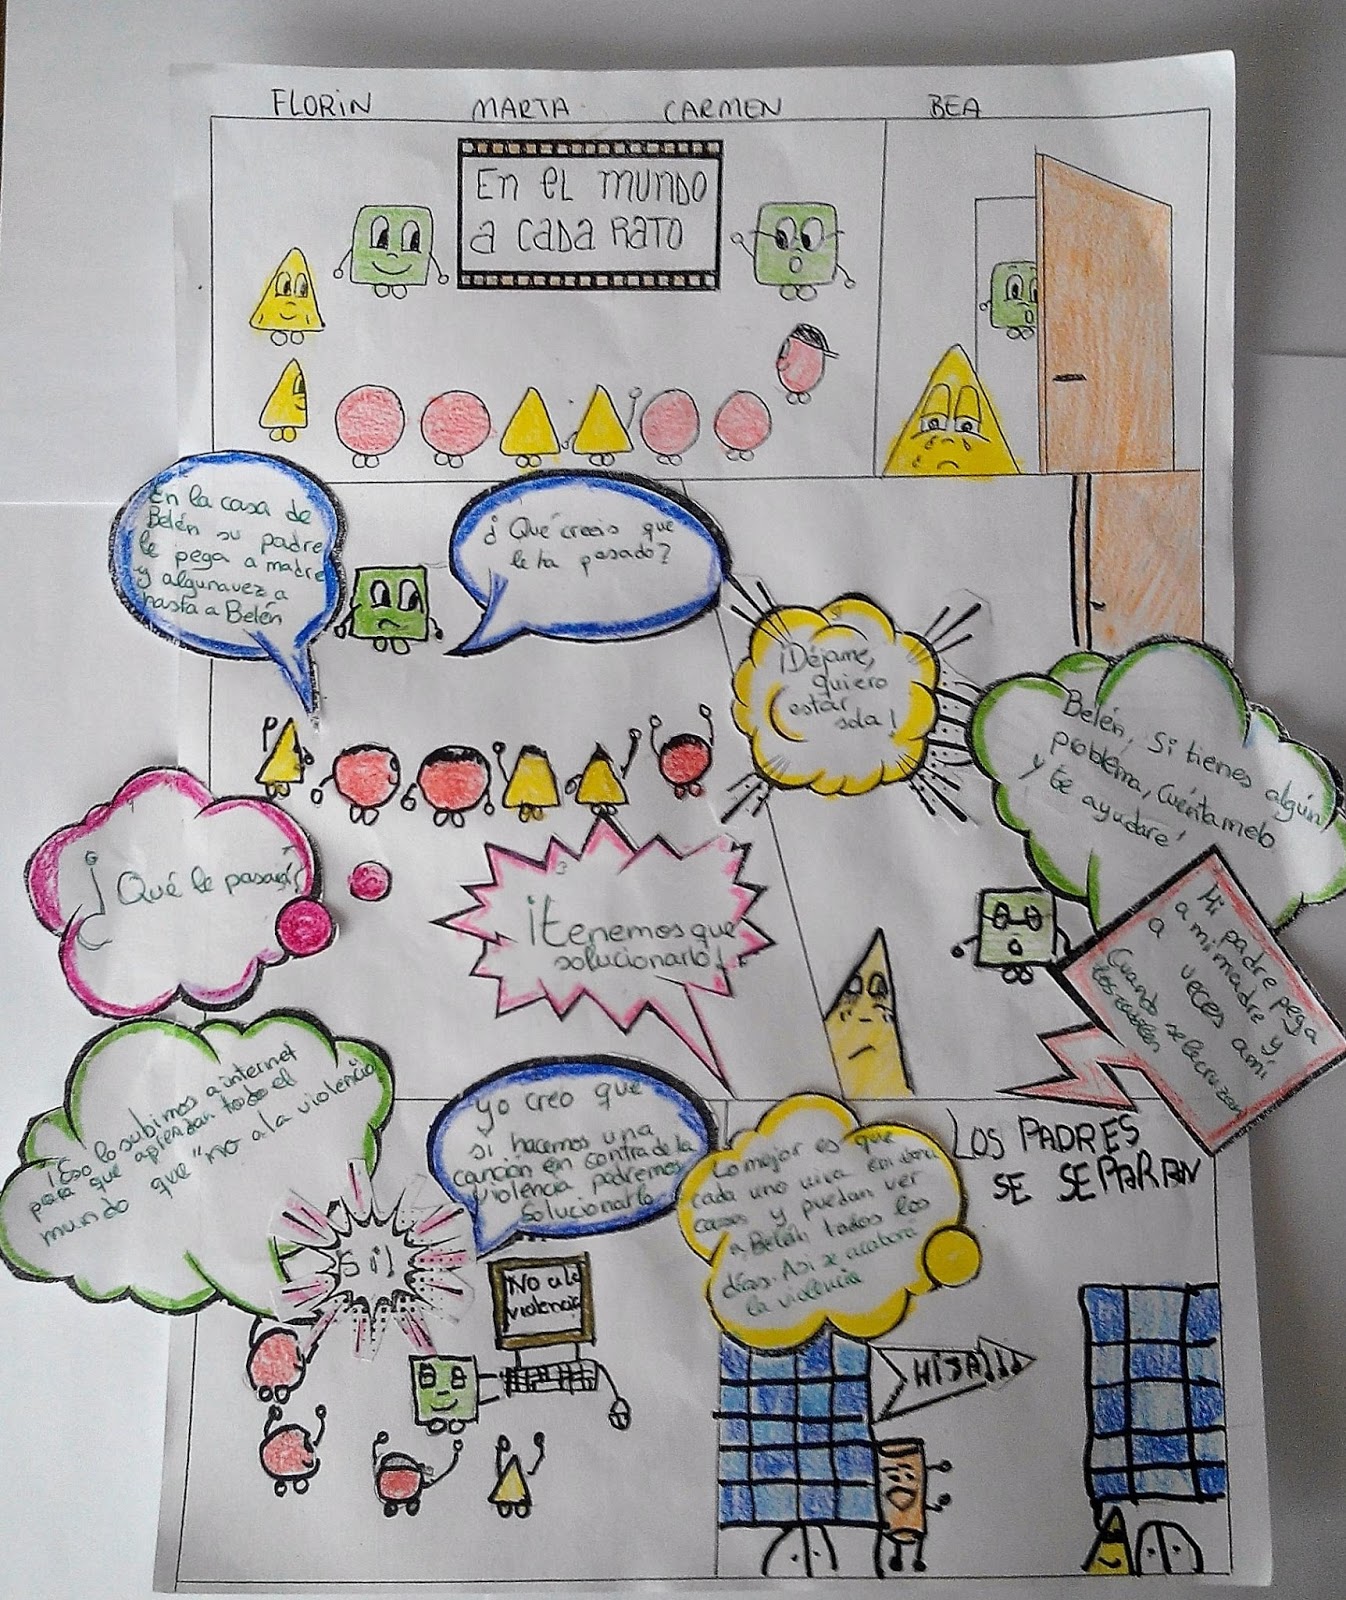 FLORIN MARTA CARMEN BEA
En el mundo
a cada rato
En la casa de
Belén su padre
le pega a madre
y algunavez a
hasta a Belén
¿Qué creeis que
le ha pasado?
¡Déjame,
quiero
estar
sola!
Belén, Si tienes algún
problema, Cuéntamelo
y te ayudaré!
¿Qué le pasará?
¡tenemos que
solucionarlo!
Mi padre pega
a mi madre y
a veces ami
Cuando se le cruzan
los cables
¡Eso lo subimos a internet
para que aprendan todo el
mundo que "no a la violencia"
Sí!
yo creo que
si hacemos una
canción en contra de la
violencia podremos
solucionarlo
No a la
violencia
Lo mejor es que
cada uno viva en
casas y puedan ver
a Belén todos los
días. Así se acabará
la violencia
LOS PADRES
SE SEPARAN
HIJA!!!